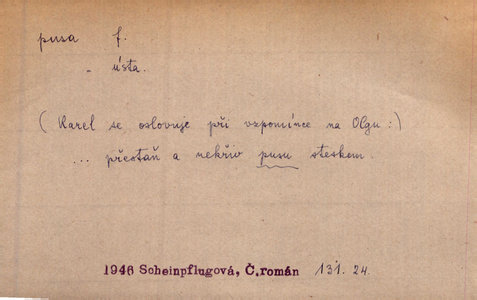 pusa f.
- ústa.
( Karel se oslovuje při vzpomínce na Olgu : )
... přestaň a nekřiv pusu steskem.
1946 Scheinpflugová, Č. román 131. 24.